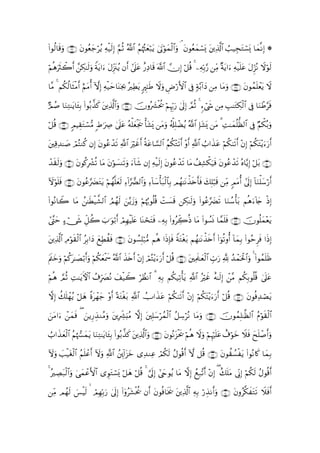 * إِنَّمَا يَسْتَجِيبُ الَّذِينَ يَسْمَعُونَ ۘ وَالْمَوْتَىٰ يَبْعَثُهُمُ اللَّهُ ثُمَّ إِلَيْهِ يُرْجَعُونَ ﴿٣٦﴾ وَقَالُوا
لَوْلَا نُزِّلَ عَلَيْهِ آيَةٌ مِّن رَّبِّهِ ۚ قُلْ إِنَّ اللَّهَ قَادِرٌ عَلَىٰ أَن يُنَزِّلَ آيَةً وَلَٰكِنَّ أَكْثَرَهُمْ
لَا يَعْلَمُونَ ﴿٣٧﴾ وَمَا مِن دَابَّةٍ فِي الْأَرْضِ وَلَا طَائِرٍ يَطِيرُ بِجَنَاحَيْهِ إِلَّا أُمَمٌ أَمْثَالُكُم ۚ مَّا
فَرَّطْنَا فِي الْكِتَابِ مِن شَيْءٍ ۚ ثُمَّ إِلَىٰ رَبِّهِمْ يُحْشَرُونَ ﴿٣٨﴾ وَالَّذِينَ كَذَّبُوا بِآيَاتِنَا صُمٌّ
وَبُكْمٌ فِي الظُّلُمَاتِ ۗ مَن يَشَإِ اللَّهُ يُضْلِلْهُ وَمَن يَشَأْ يَجْعَلْهُ عَلَىٰ صِرَاطٍ مُّسْتَقِيمٍ ﴿٣٩﴾ قُلْ
أَرَأَيْتَكُمْ إِنْ أَتَاكُمْ عَذَابُ اللَّهِ أَوْ أَتَتْكُمُ السَّاعَةُ أَغَيْرَ اللَّهِ تَدْعُونَ إِن كُنتُمْ صَادِقِينَ
﴿٤٠﴾ بَلْ إِيَّاهُ تَدْعُونَ فَيَكْشِفُ مَا تَدْعُونَ إِلَيْهِ إِن شَاءَ وَتَنسَوْنَ مَا تُشْرِكُونَ ﴿٤١﴾ وَلَقَدْ
أَرْسَلْنَا إِلَىٰ أُمَمٍ مِّن قَبْلِكَ فَأَخَذْنَاهُم بِالْبَأْسَاءِ وَالضَّرَّاءِ لَعَلَّهُمْ يَتَضَرَّعُونَ ﴿٤٢﴾ فَلَوْلَا
إِذْ جَاءَهُم بَأْسُنَا تَضَرَّعُوا وَلَٰكِن قَسَتْ قُلُوبُهُمْ وَزَيَّنَ لَهُمُ الشَّيْطَانُ مَا كَانُوا
يَعْمَلُونَ ﴿٤٣﴾ فَلَمَّا نَسُوا مَا ذُكِّرُوا بِهِ فَتَحْنَا عَلَيْهِمْ أَبْوَابَ كُلِّ شَيْءٍ حَتَّىٰ
إِذَا فَرِحُوا بِمَا أُوتُوا أَخَذْنَاهُم بَغْتَةً فَإِذَا هُم مُّبْلِسُونَ ﴿٤٤﴾ فَقُطِعَ دَابِرُ الْقَوْمِ الَّذِينَ
ظَلَمُوا ۚ وَالْحَمْدُ لِلَّهِ رَبِّ الْعَالَمِينَ ﴿٤٥﴾ قُلْ أَرَأَيْتُمْ إِنْ أَخَذَ اللَّهُ سَمْعَكُمْ وَأَبْصَارَكُمْ وَخَتَمَ
عَلَىٰ قُلُوبِكُم مَّنْ إِلَٰهٌ غَيْرُ اللَّهِ يَأْتِيكُم بِهِ ۗ انظُرْ كَيْفَ نُصَرِّفُ الْآيَاتِ ثُمَّ هُمْ
يَصْدِفُونَ ﴿٤٦﴾ قُلْ أَرَأَيْتَكُمْ إِنْ أَتَاكُمْ عَذَابُ اللَّهِ بَغْتَةً أَوْ جَهْرَةً هَلْ يُهْلَكُ إِلَّا
الْقَوْمُ الظَّالِمُونَ ﴿٤٧﴾ وَمَا نُرْسِلُ الْمُرْسَلِينَ إِلَّا مُبَشِّرِينَ وَمُنذِرِينَ ۖ فَمَنْ آمَنَ
وَأَصْلَحَ فَلَا خَوْفٌ عَلَيْهِمْ وَلَا هُمْ يَحْزَنُونَ ﴿٤٨﴾ وَالَّذِينَ كَذَّبُوا بِآيَاتِنَا يَمَسُّهُمُ الْعَذَابُ
بِمَا كَانُوا يَفْسُقُونَ ﴿٤٩﴾ قُل لَّا أَقُولُ لَكُمْ عِندِي خَزَائِنُ اللَّهِ وَلَا أَعْلَمُ الْغَيْبَ وَلَا
أَقُولُ لَكُمْ إِنِّي مَلَكٌ ۖ إِنْ أَتَّبِعُ إِلَّا مَا يُوحَىٰ إِلَيَّ ۚ قُلْ هَلْ يَسْتَوِي الْأَعْمَىٰ وَالْبَصِيرُ ۚ
أَفَلَا تَتَفَكَّرُونَ ﴿٥٠﴾ وَأَنذِرْ بِهِ الَّذِينَ يَخَافُونَ أَن يُحْشَرُوا إِلَىٰ رَبِّهِمْ ۙ لَيْسَ لَهُم مِّن